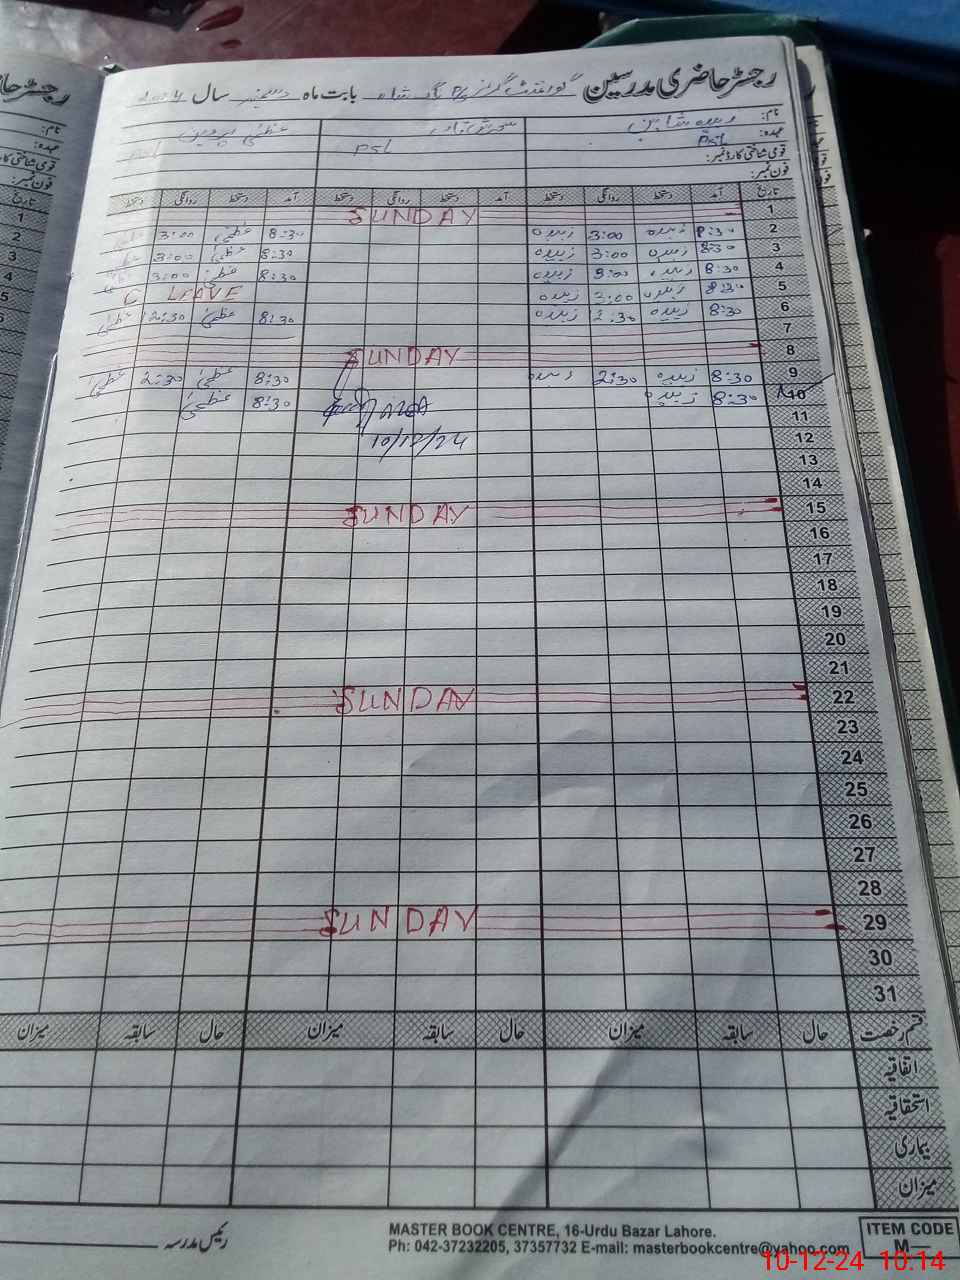 رجسٹر حاضری مدرسین گورنمنٹ گرلز P/S بابت ماہ دسمبر سال
نام:
عہدہ: PST PST
قومی شناختی کارڈ نمبر:
فون نمبر:
تاریخ آمد دستخط روانگی دستخط آمد دستخط روانگی دستخط آمد دستخط روانگی دستخط
1 SUNDAY
2 8:30 زبیدہ 3:00 زبیدہ 8:30 عظمیٰ 3:00
3 8:30 زبیدہ 3:00 زبیدہ 8:30 عظمیٰ 3:00
4 8:30 زبیدہ 3:00 زبیدہ 8:30 عظمیٰ 3:00
5 8:30 زبیدہ 3:00 زبیدہ C LEAVE
6 8:30 زبیدہ 2:30 زبیدہ 8:30 عظمیٰ 12:30 عظمیٰ
7
8 SUNDAY
9 8:30 زبیدہ 2:30 زبیدہ 8:30 عظمیٰ 2:30 عظمیٰ
10 8:30 زبیدہ 8:30 عظمیٰ
11 10/12/24
12
13
14
15 SUNDAY
16
17
18
19
20
21
22 SUNDAY
23
24
25
26
27
28
29 SUNDAY
30
31
قسم رخصت حال سابقہ میزان حال سابقہ میزان حال سابقہ میزان
اتفاقیہ
استحقاقیہ
بیماری
میزان
رئیس مدرسہ
MASTER BOOK CENTRE, 16-Urdu Bazar Lahore.
Ph: 042-37232205, 37357732 E-mail: masterbookcentre@yahoo.com
ITEM CODE
M—
10-12-24 10:14